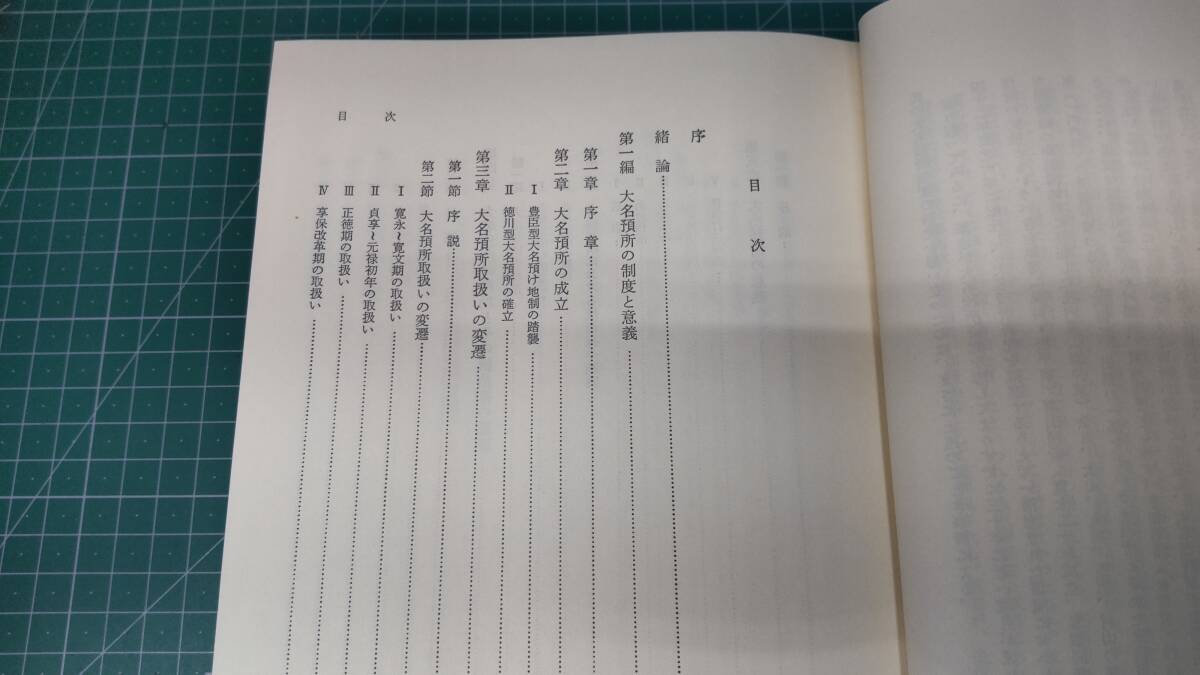 目次
序
緒論
第一編 大名預所の制度と意義
第一章 序章
第二章 大名預所の成立
Ⅰ 豊臣型大名預け地制の踏襲
Ⅱ 徳川型大名預所の確立
第三章 大名預所取扱いの変遷
第一節 序説
第二節 大名預所取扱いの変遷
Ⅰ 寛永~寛文期の取扱い
Ⅱ 貞享~元禄初年の取扱い
Ⅲ 正徳期の取扱い
Ⅳ 享保改革期の取扱い
目次